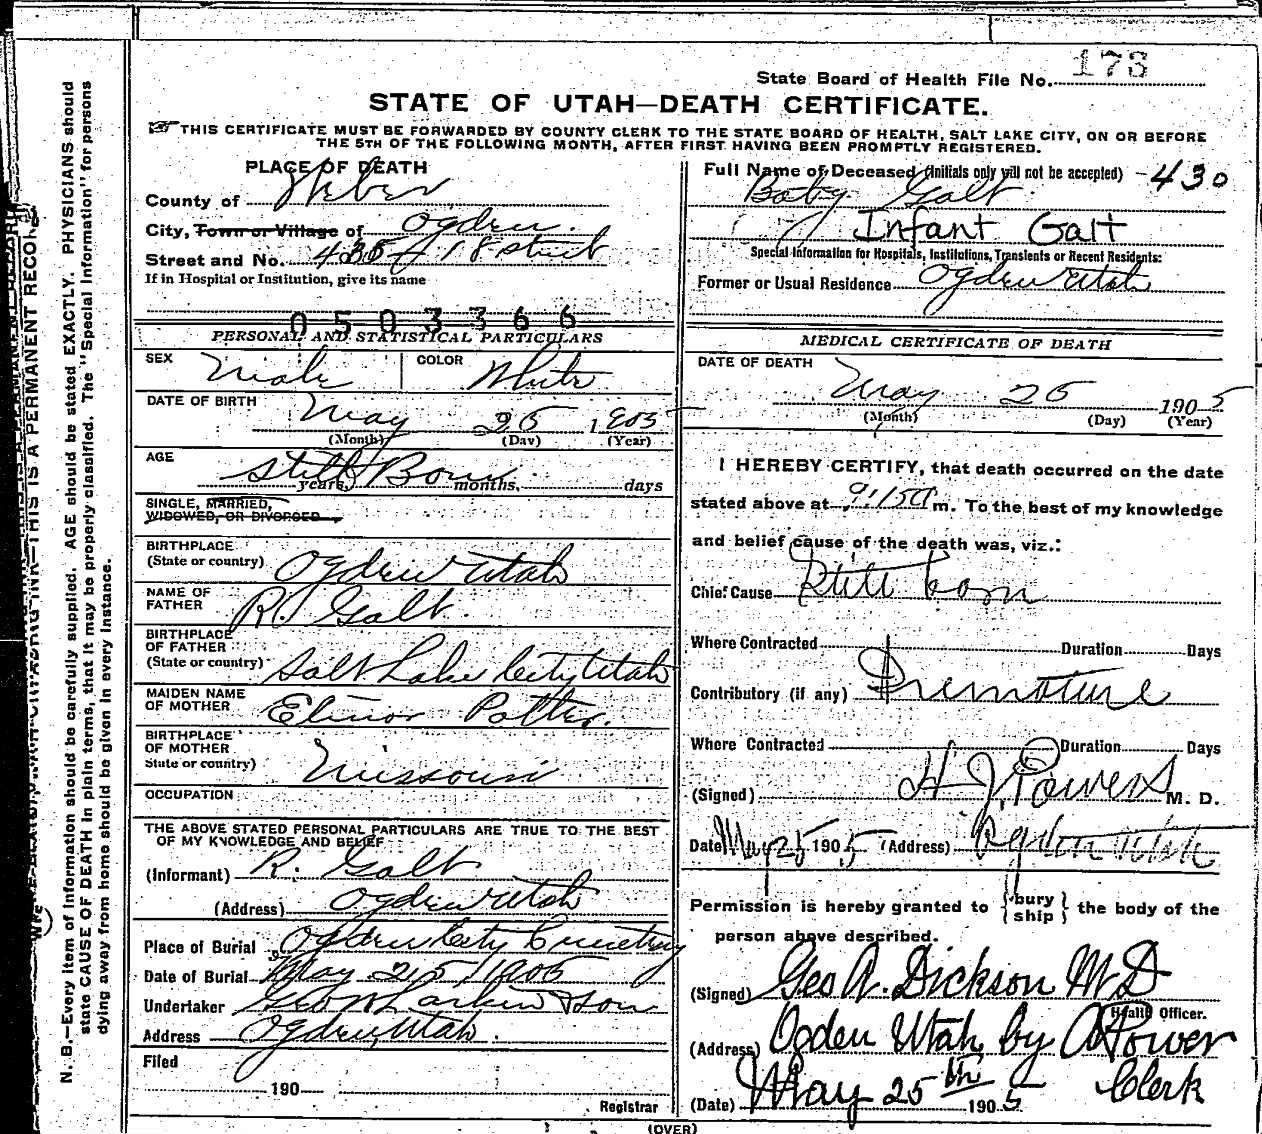 State Board of Health File No. 173
STATE OF UTAH—DEATH CERTIFICATE.
THIS CERTIFICATE MUST BE FORWARDED BY COUNTY CLERK TO THE STATE BOARD OF HEALTH, SALT LAKE CITY, ON OR BEFORE
THE 5TH OF THE FOLLOWING MONTH, AFTER FIRST HAVING BEEN PROMPTLY REGISTERED.
PLACE OF DEATH
County of Weber
City, Town or Village of Ogden.
Street and No. 435 18 street
If in Hospital or Institution, give its name
0503366
PERSONAL AND STATISTICAL PARTICULARS
SEX Male COLOR White
DATE OF BIRTH May 25 1905
(Month) (Day) (Year)
AGE Still Born
years, months, days
SINGLE, MARRIED,
WIDOWED, OR DIVORCED
BIRTHPLACE
(State or country) Ogden Utah
NAME OF
FATHER R. Galt.
BIRTHPLACE
OF FATHER
(State or country) Salt Lake City Utah
MAIDEN NAME
OF MOTHER Elinor Potter.
BIRTHPLACE
OF MOTHER
State or country) Missouri
OCCUPATION
THE ABOVE STATED PERSONAL PARTICULARS ARE TRUE TO THE BEST
OF MY KNOWLEDGE AND BELIEF
(Informant) R. Galt
(Address) Ogden Utah
Place of Burial Ogden City Cemetery
Date of Burial May 25 1905
Undertaker Geo W Larkin & Son
Address Ogden, Utah.
Filed
190
Registrar
Full Name of Deceased (Initials only will not be accepted) -430
Baby Galt
Infant Galt
Special Information for Hospitals, Institutions, Transients or Recent Residents:
Former or Usual Residence Ogden Utah
MEDICAL CERTIFICATE OF DEATH
DATE OF DEATH
May 25 1905
(Month) (Day) (Year)
I HEREBY CERTIFY, that death occurred on the date
stated above at 9:15 a m. To the best of my knowledge
and belief cause of the death was, viz.:
Chief Cause Still born
Where Contracted Duration Days
Contributory (if any) Premature
Where Contracted Duration Days
(Signed) H J. Powers M. D.
Date May 25 1905 (Address) Ogden Utah
Permission is hereby granted to {bury ship} the body of the
person above described.
(Signed) Geo A. Dickson M D
Health Officer.
(Address) Ogden Utah, by A Power
Clerk
(Date) May 25th 1905
(OVER)
N. B.—Every item of information should be carefully supplied. AGE should be stated EXACTLY. PHYSICIANS should
state CAUSE OF DEATH in plain terms, that it may be properly classified. The "Special Information" for persons
dying away from home should be given in every instance.
THIS IS A PERMANENT RECORD